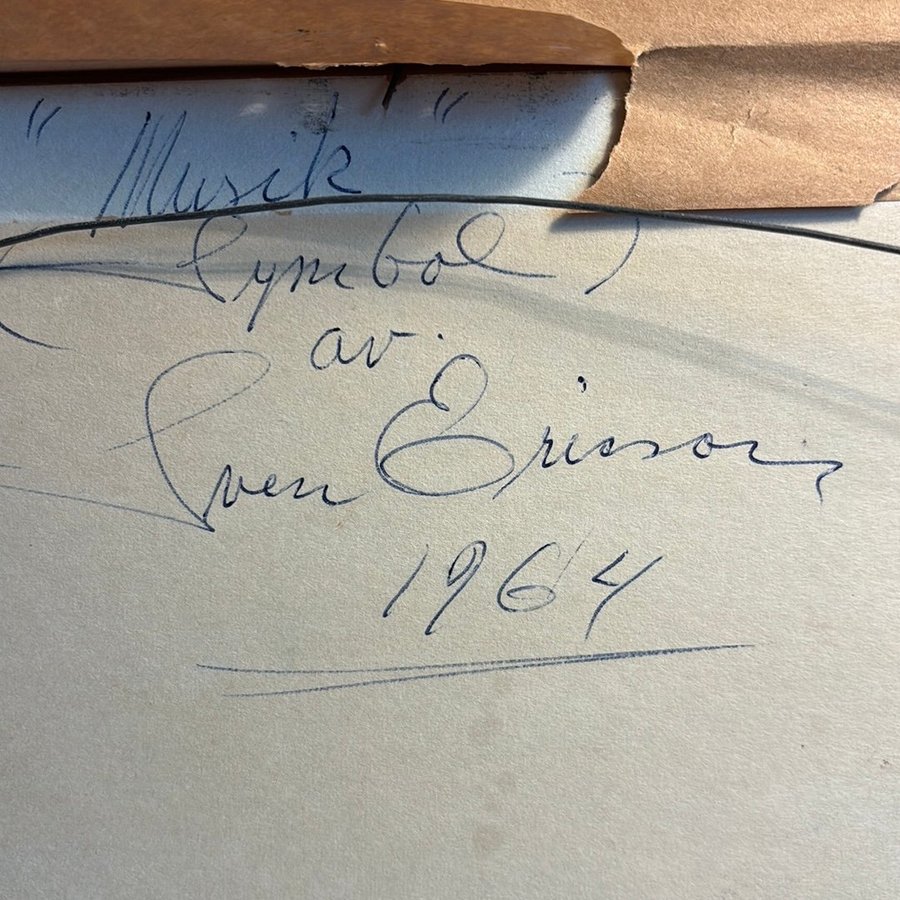 "Musik"
(Symbol)
av.
Sven Ericson
1964